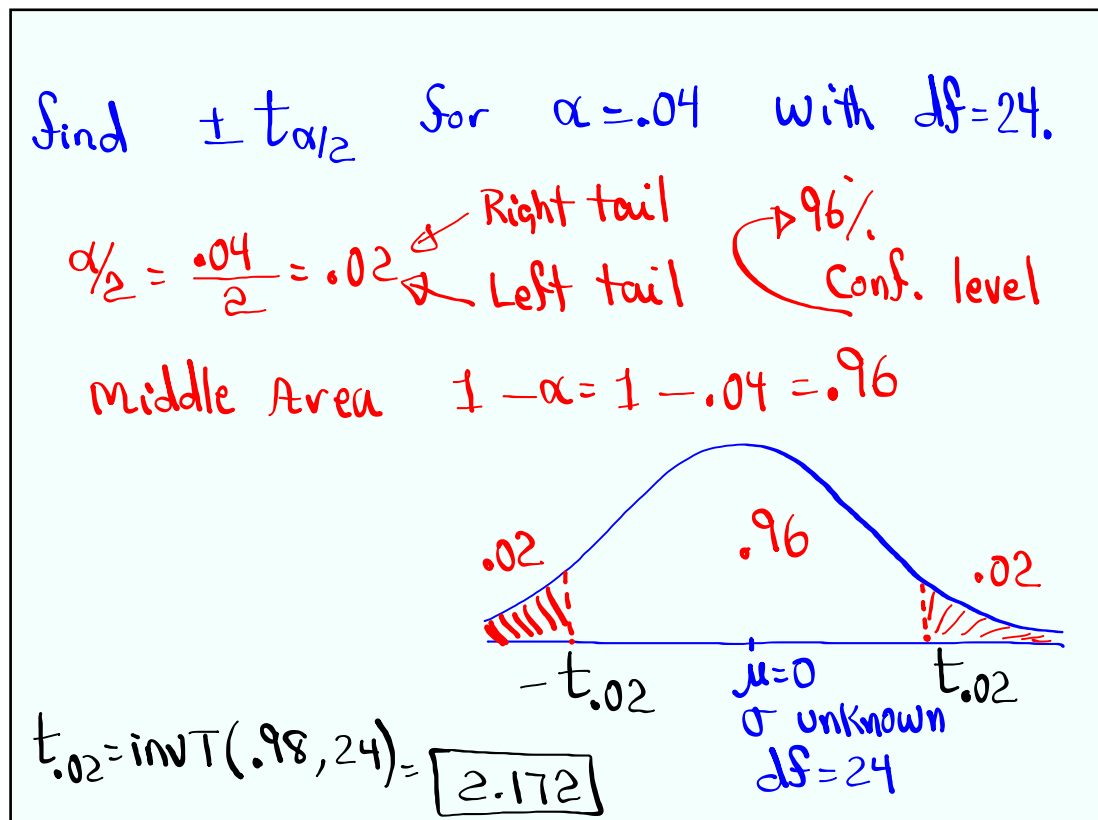 find ± t α/2 for α = .04 with df = 24.
α/2 = .04/2 = .02 Right tail
Left tail
96%
Conf. level
Middle Area 1 - α = 1 - .04 = .96
.02 .96 .02
- t.02 μ=0 t.02
σ unknown
df = 24
t.02 = invT(.98, 24) = 2.172